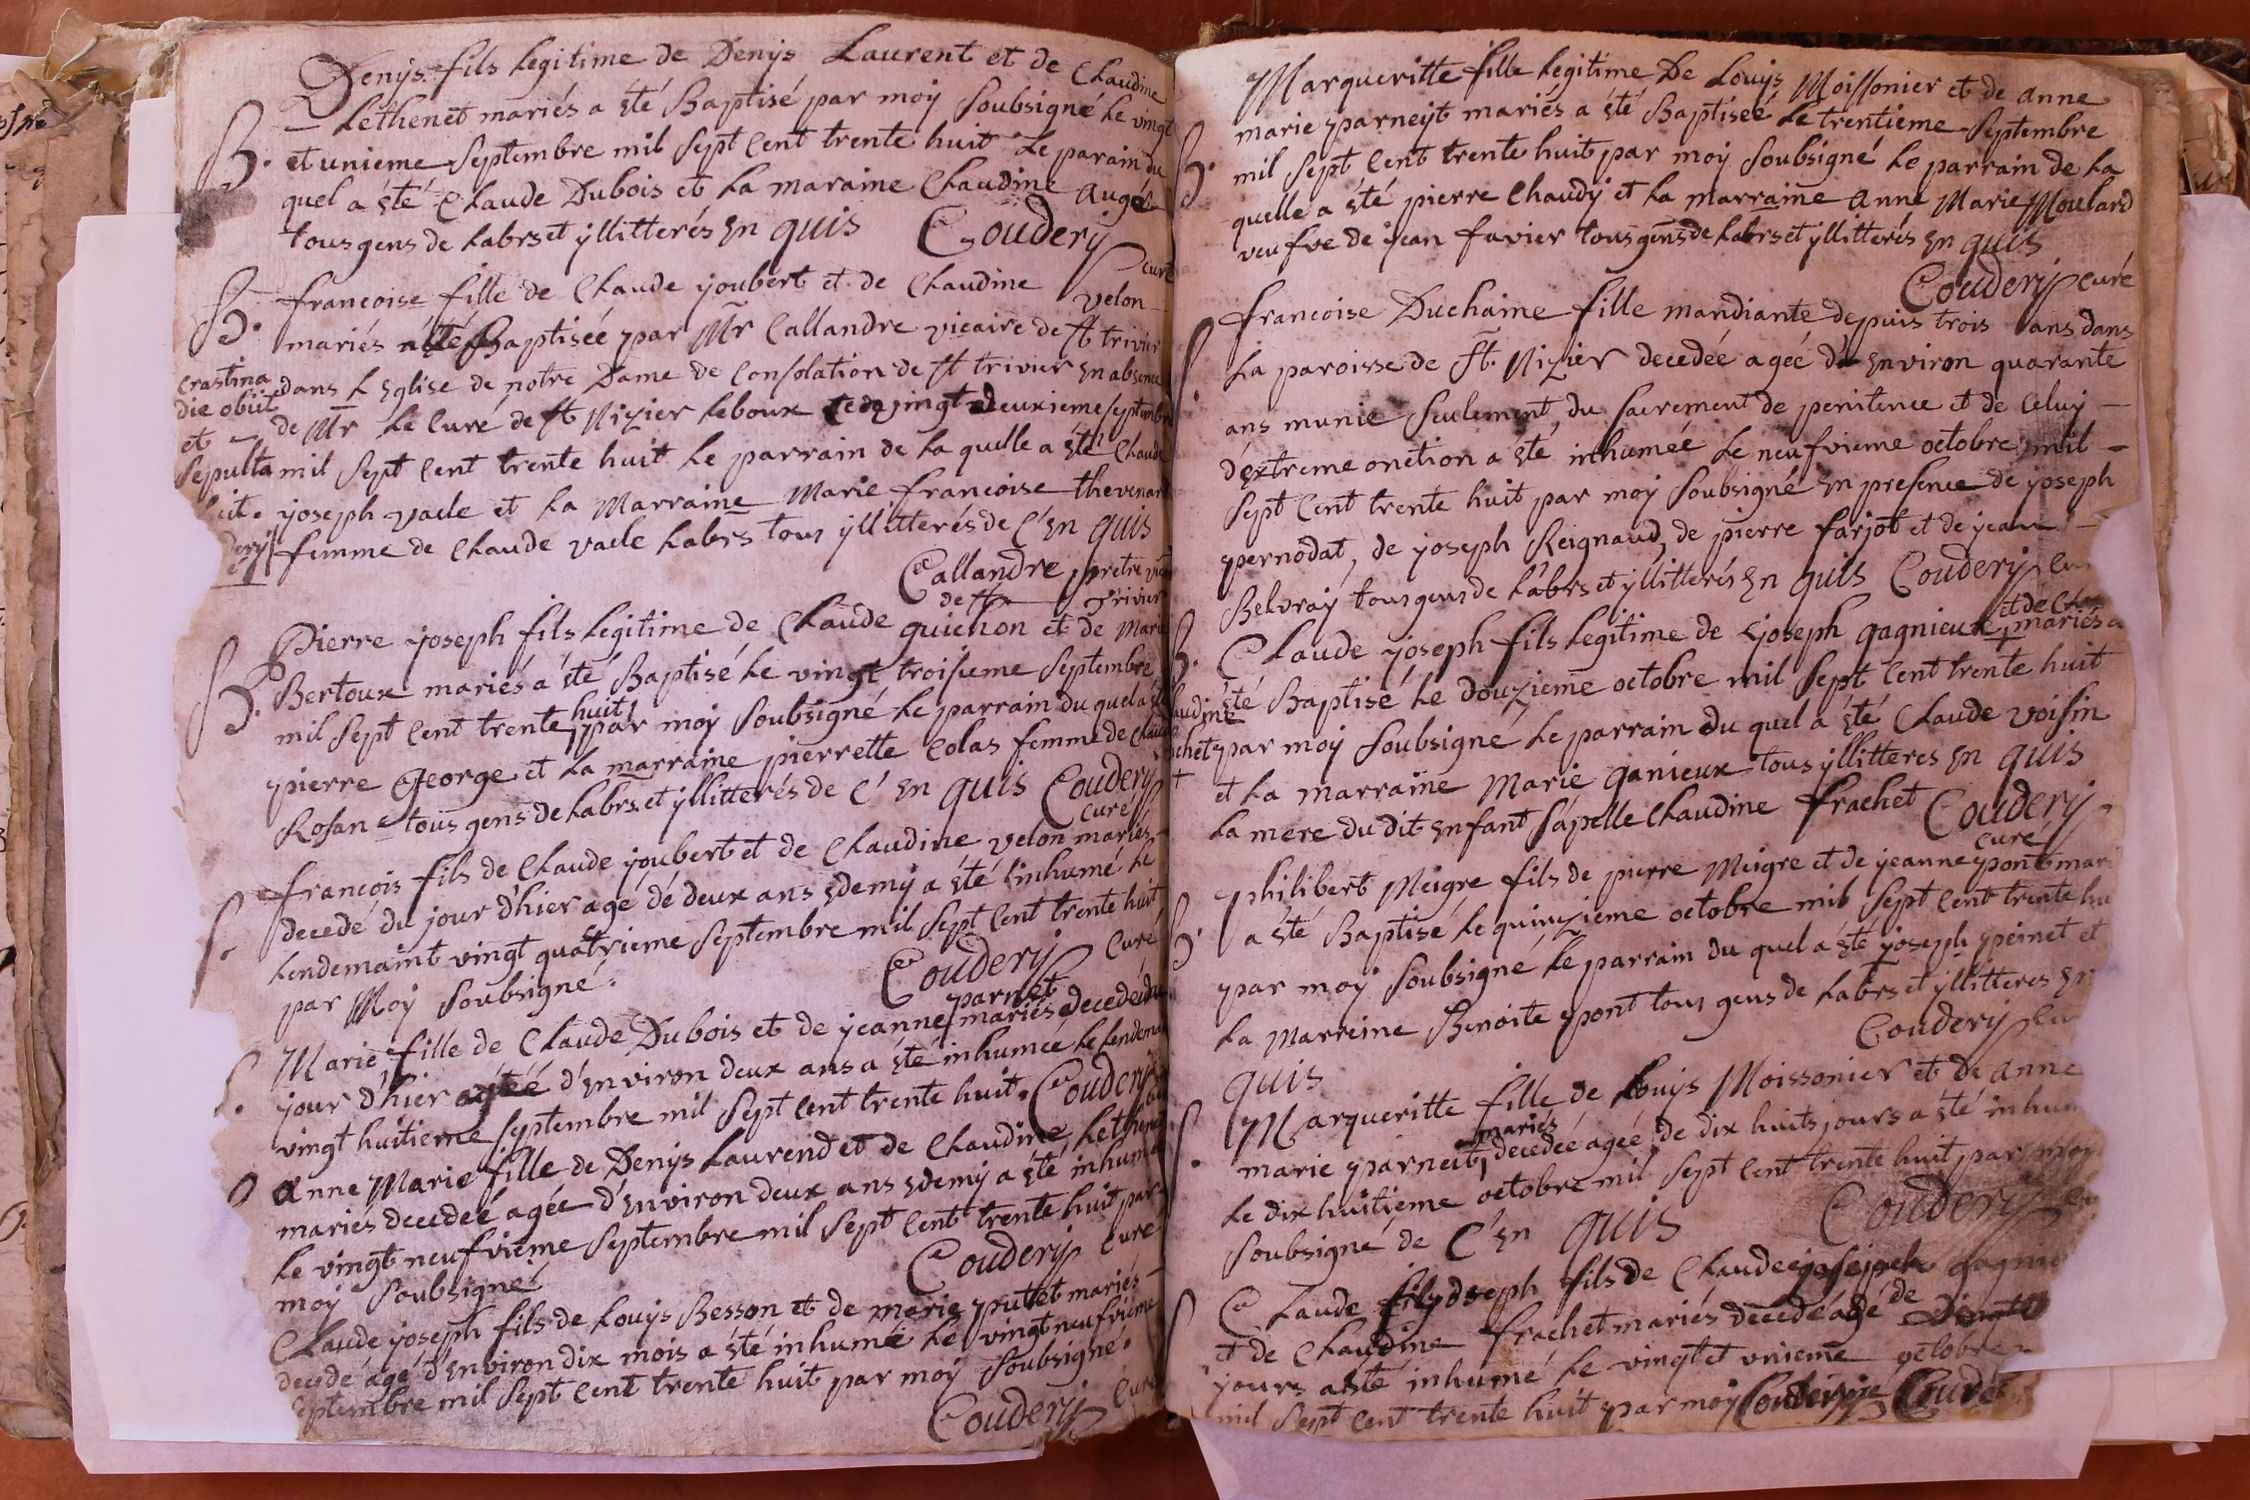 Denÿs fils legitime de Denÿs Laurent et de Claudine
Lethenet mariés a été Baptisé par moÿ soubsigné le vingt
B. et unieme septembre mil sept cent trente huit le parain du
quel a été Claude Dubois et la maraine Claudine Augé
tous gens de labrs et ÿllitterés en quis Couderÿ
curé
B. francoise fille de Claude ÿoubert et de Claudine velon
mariés Baptiseé par Mr Callandre vicaire de st trivier
crastina dans l Eglise de notre Dame de Consolation de st trivier en absence
die obiit
et de Mr le Curé de st Nizier leboux vingt deuxieme septembre
sepulta mil sept cent trente huit le parrain de la quelle a été Claude
ÿoseph vacle et la Marraine Marie francoise thevenard
femme de Claude vacle labrs tous ÿllitterés de C'en quis
Callandre pretre
de st trivier
B. Pierre ÿoseph fils legitime de Claude guichon et de Marie
Bertoux mariés a été Baptisé le vingt troisieme septembre
huit
mil sept cent trente par moÿ soubsigné le parrain du quel a été
pierre George et la marraine pierrette Colas femme de Claude
Rosan tous gens de labrs et ÿllitterés de C' en quis Couderÿ
Curé
francois fils de Claude ÿoubert et de Claudine velon mariés
decedé du jour d'hier agé de deux ans edemÿ a été inhumé le
S. lendemaint vingt quatrieme septembre mil sept cent trente huit
par Moÿ soubsigné. Couderÿ Curé
parnet
Marie fille de Claude Dubois et de ÿeanne mariés decedeé du
S. jour d'hier ageé d'environ deux ans a été inhumeé le lendemain
vingt huitieme septembre mil sept cent trente huit. Couderÿ
Anne Marie fille de Denÿs Laurend et de Claudine Lethenet
mariés decedeé agée d'environ deux ans edemÿ a été inhumé
le vingt neufvieme septembre mil sept cent trente huit par
moÿ soubsigné Couderÿ Curé
Claude ÿoseph fils de Louÿs Besson et de marie puttet mariés
decedé agé d'environ dix mois a été inhumé le vingt neufvieme
septembre mil sept cent trente huit par moÿ soubsigné.
Couderÿ Curé
Margueritte fille legitime De Louÿs Moissonier et de anne
marie parneÿt mariés a été Baptiseé le trentieme septembre
B. mil sept cent trente huit par moÿ soubsigné le parrain de la
quelle a été pierre Chaudÿ et la marraine anne Marie Moulard
veufve de ÿean favier tous gens de labrs et ÿllitterés en quis
Couderÿ curé
francoise Duchaine fille mandiante depuis trois ans dans
S. la paroisse de st. Nizier decedeé ageé d'environ quarante
ans munie seulement du sacrement de penitence et de celuÿ
d'extreme onction a été inhumée le neufvieme octobre mil
sept cent trente huit par moÿ soubsigné en presence de ÿoseph
pernodat, de ÿoseph Reignaud, de pierre farjot et de ÿean
Belvraÿ tous gens de labrs et ÿllitterés en quis Couderÿ
et de
B. Claude ÿoseph fils legitime de ÿoseph gagnieux mariés a
été Baptisé le douzieme octobre mil sept cent trente huit
par moÿ soubsigné le parrain du quel a été Claude voisin
et la marraine Marie ganieux tous ÿllitteres en quis
la mere du dit enfant s'apelle Claudine frachet Couderÿ
curé
philibert Meigre fils de pierre Meigre et de ÿeanne pont
B. a été Baptisé le quinzieme octobre mil sept cent trente
par moÿ soubsigné le parrain du quel a été ÿoseph peinet et
la Marreine Benoite pont tous gens de labrs et ÿllitteres en
quis Couderÿ
Margueritte fille de Louÿs Moissonier et de anne
mariés
S. marie parneit decedeé ageé de dix huits jours a été
le dix huitieme octobre mil sept cent trente huit par moÿ
soubsigné de C'en quis Couderÿ
Claude fils de Claude
et de Claudine frachet mariés decedé agé de
jours a été inhumé le vingt et unieme octobre
mil sept cent trente huit par moÿ